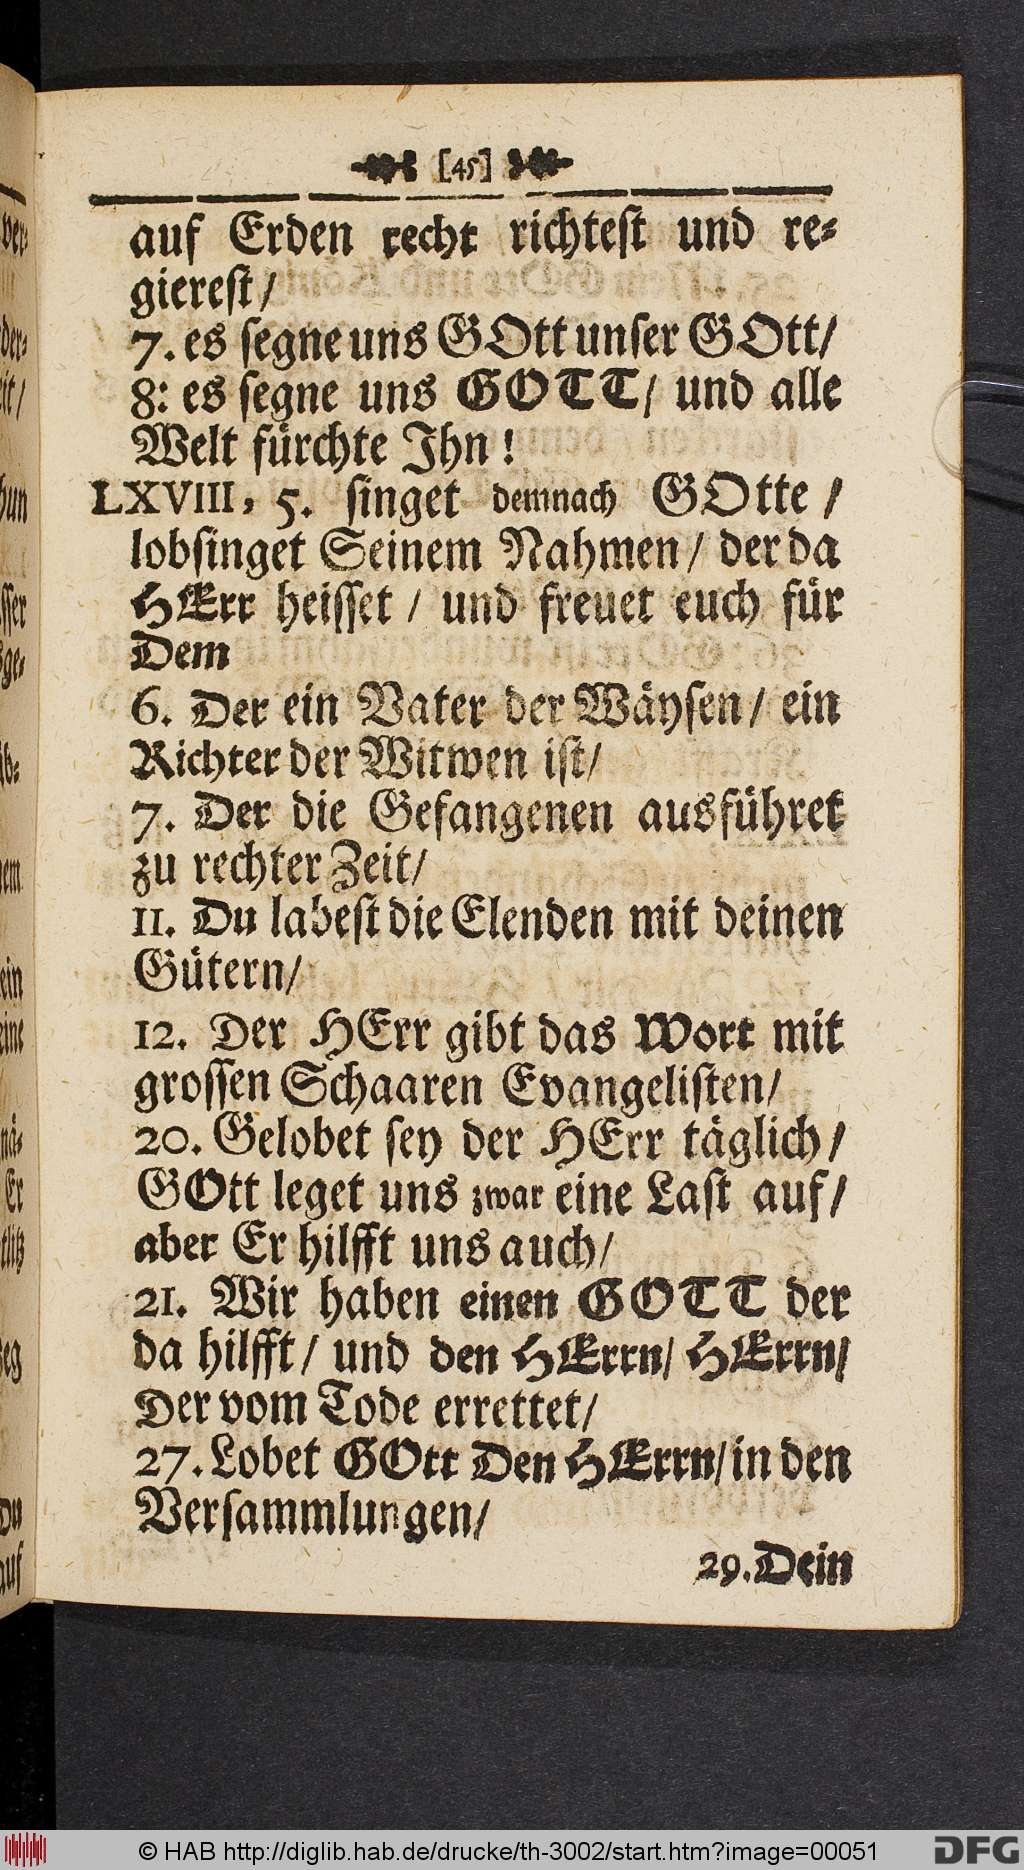 [45]
auf Erden recht richteſt und re⸗
giereſt/
7. es ſegne uns GOtt unſer GOtt/
8: es ſegne uns GOTT/ und alle
Welt fürchte Ihn!
LXVIII, 5. ſinget demnach GOtte /
lobſinget Seinem Nahmen/ der da
HErr heiſſet / und freuet euch für
Dem
6. Der ein Vater der Wäyſen/ ein
Richter der Witwen iſt/
7. Der die Gefangenen ausführet
zu rechter Zeit/
11. Du labeſt die Elenden mit deinen
Gütern/
12. Der HErr gibt das Wort mit
groſſen Schaaren Evangeliſten/
20. Gelobet ſey der HErr täglich/
GOtt leget uns zwar eine Laſt auf/
aber Er hilfft uns auch/
21. Wir haben einen GOTT der
da hilfft/ und den HErrn/ HErrn/
Der vom Tode errettet/
27. Lobet GOtt Den HErrn/ in den
Verſammlungen/
29. Dein
© HAB http://diglib.hab.de/drucke/th-3002/start.htm?image=00051
DFG